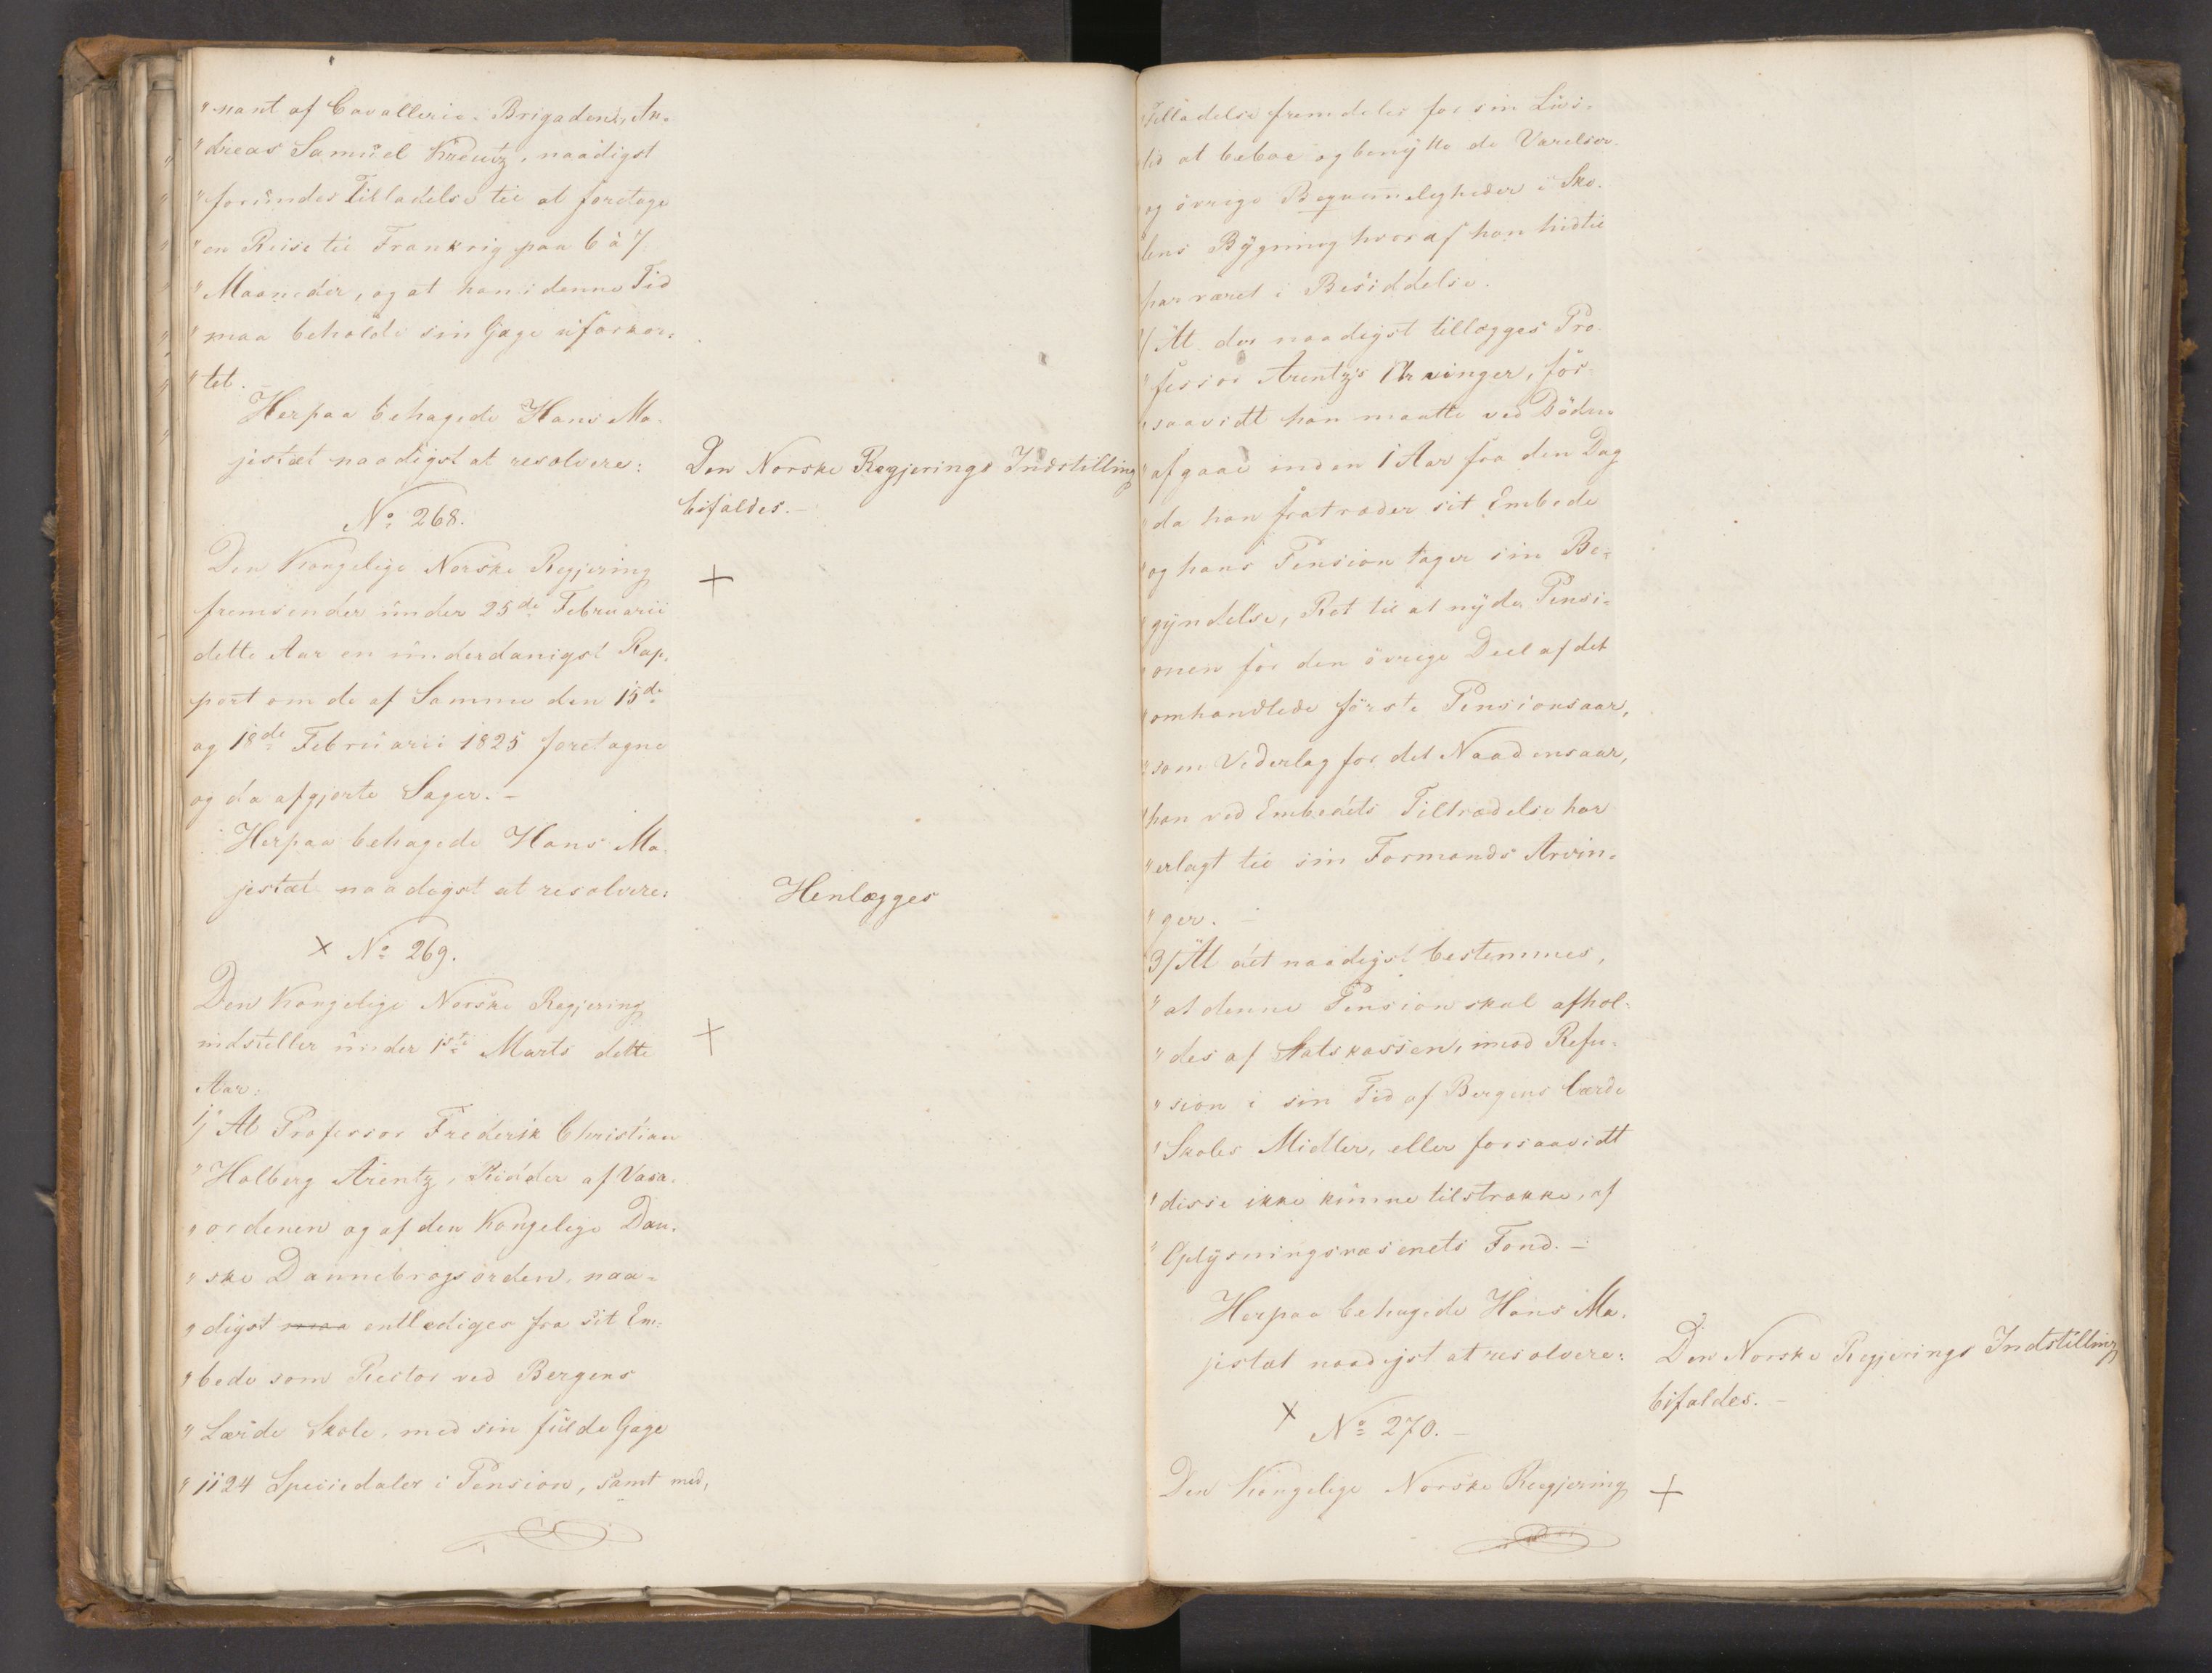 "nant af Cavallerie-Brigaden, An-
"dreas Samuel Kreutz, naadigst
"forundes Tilladelse til at foretage
"en Reise til Frankrig paa 6 à 7
"Maaneder, og at han i denne Tid
"maa beholde sin Gage uforkor-
"tet.
Herpaa behagede Hans Ma-
jestæt naadigst at resolvere:
Den Norske Regjerings Indstilling
bifaldes.-
No 268.
Den Kongelige Norske Regjering
fremsender under 25de Februarii
dette Aar en underdanigst Rap-
port om de af Samme den 15de
og 18de Februarii 1825 foretagne
og da afgjorte Sager.-
Herpaa behagede Hans Ma-
jestæt naadigst at resolvere:
Henlægges
No 269.
Den Kongelige Norske Regjering
indstiller under 1ste Marts dette
Aar:
1/ "At Professor Frederik Christian
"Holberg Arentz, Ridder af Vasa-
"ordenen og af den Kongelige Dan-
"ske Dannebrogsorden, naa-
"digst maa entlediges fra sit Em-
"bede som Rector ved Bergens
"Lærde Skole, med sin fulde Gage
"1124 Speciedaler i Pension, samt med,
Tilladelse fremdeles for sin Livs-
tid at beboe og benytte de Værelser
og övrige Beqvemeligheder i Sko-
lens Bygning hvoraf han hidtil
har været i Besiddelse.
2/ At der naadigst tillægges Pro-
"fessor Arentz's Arvinger, for-
"saavidt han maatte ved Döden
"afgaae inden 1 Aar fra den Dag
"da han fratræder sit Embede
"og hans Pension tager sin Be-
"gyndelse, Ret til at nyde Pensi-
"onen for den övrige Deel af det
"omhandlede förste Pensionsaar,
"som Vederlag for det Naadensaar,
"han ved Embedets Tiltrædelse har
"erlagt til sin Formands Arvin-
"ger.-
3/ At det naadigst bestemmes,
"at denne Pension skal afhol-
"des af Statskassen, imod Refu-
"sion i sin Tid af Bergens lærde
"Skoles Midler, eller forsaavidt
"disse ikke kunne tilstrække, af
"Oplysningsvæsenets Fond.-
Herpaa behagede Hans Ma-
jestæt naadigst at resolvere:
Den Norske Regjerings Indstilling
bifaldes.-
No 270.-
Den Kongelige Norske Regjering